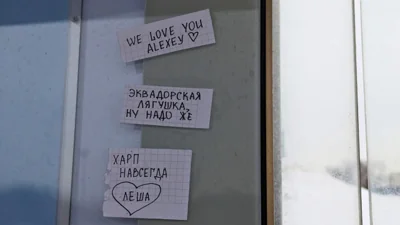 WE LOVE YOU
ALEXEY ♡
ЭКВАДОРСКАЯ
ЛЯГУШКА,
НУ НАДО ЖЕ
ХАРП
НАВСЕГДА
ЛЁША